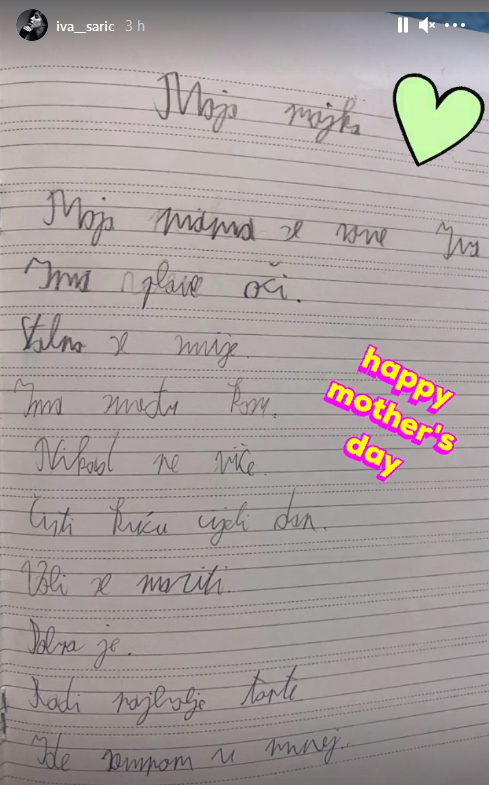 iva__saric 3 h
Moja majka
Moja mama se zove Iva
Ima plave oči.
Stalno se smije.
happy
mother's
day
Ima smeđu kosu.
Nikad ne viče.
Čisti kuću cijeli dan.
Voli se maziti.
Dobra je.
Radi najbolje torte
Ide samnom u